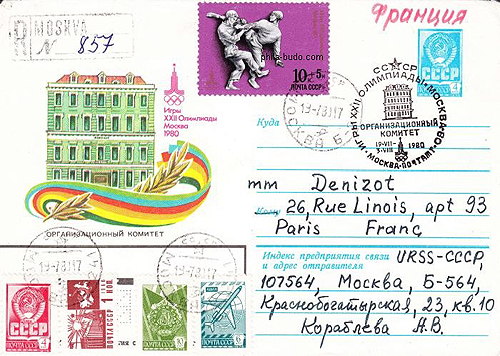 Франция
R MOSKVA
№ 857
phila-budo.com
10к+5к
ПОЧТА СССР
СССР
4
Игры
XXII Олимпиады
Москва
1980
СССР
ИГРЫ XXII ОЛИМПИАДЫ МОСКВА-80
ОРГАНИЗАЦИОННЫЙ
КОМИТЕТ
19-VII-
3-VIII 1980
МОСКВА-ПОЧТАМТ
19-7-8017
МОСКВА
Куда
mm Denizot
Кому
26, Rue Linois, apt 93
Paris Franç
ОРГАНИЗАЦИОННЫЙ КОМИТЕТ
Индекс предприятия связи
и адрес отправителя
URSS-СССР,
107564, Москва, Б-564,
Краснобогатырская, 23, кв. 10
Кораблева А.В.
19-7-8017
19-7-8017
СССР
ПОЧТА
4
ПОЧТА СССР
1 КОП
ПОЧТА СССР
ПОЧТА СССР